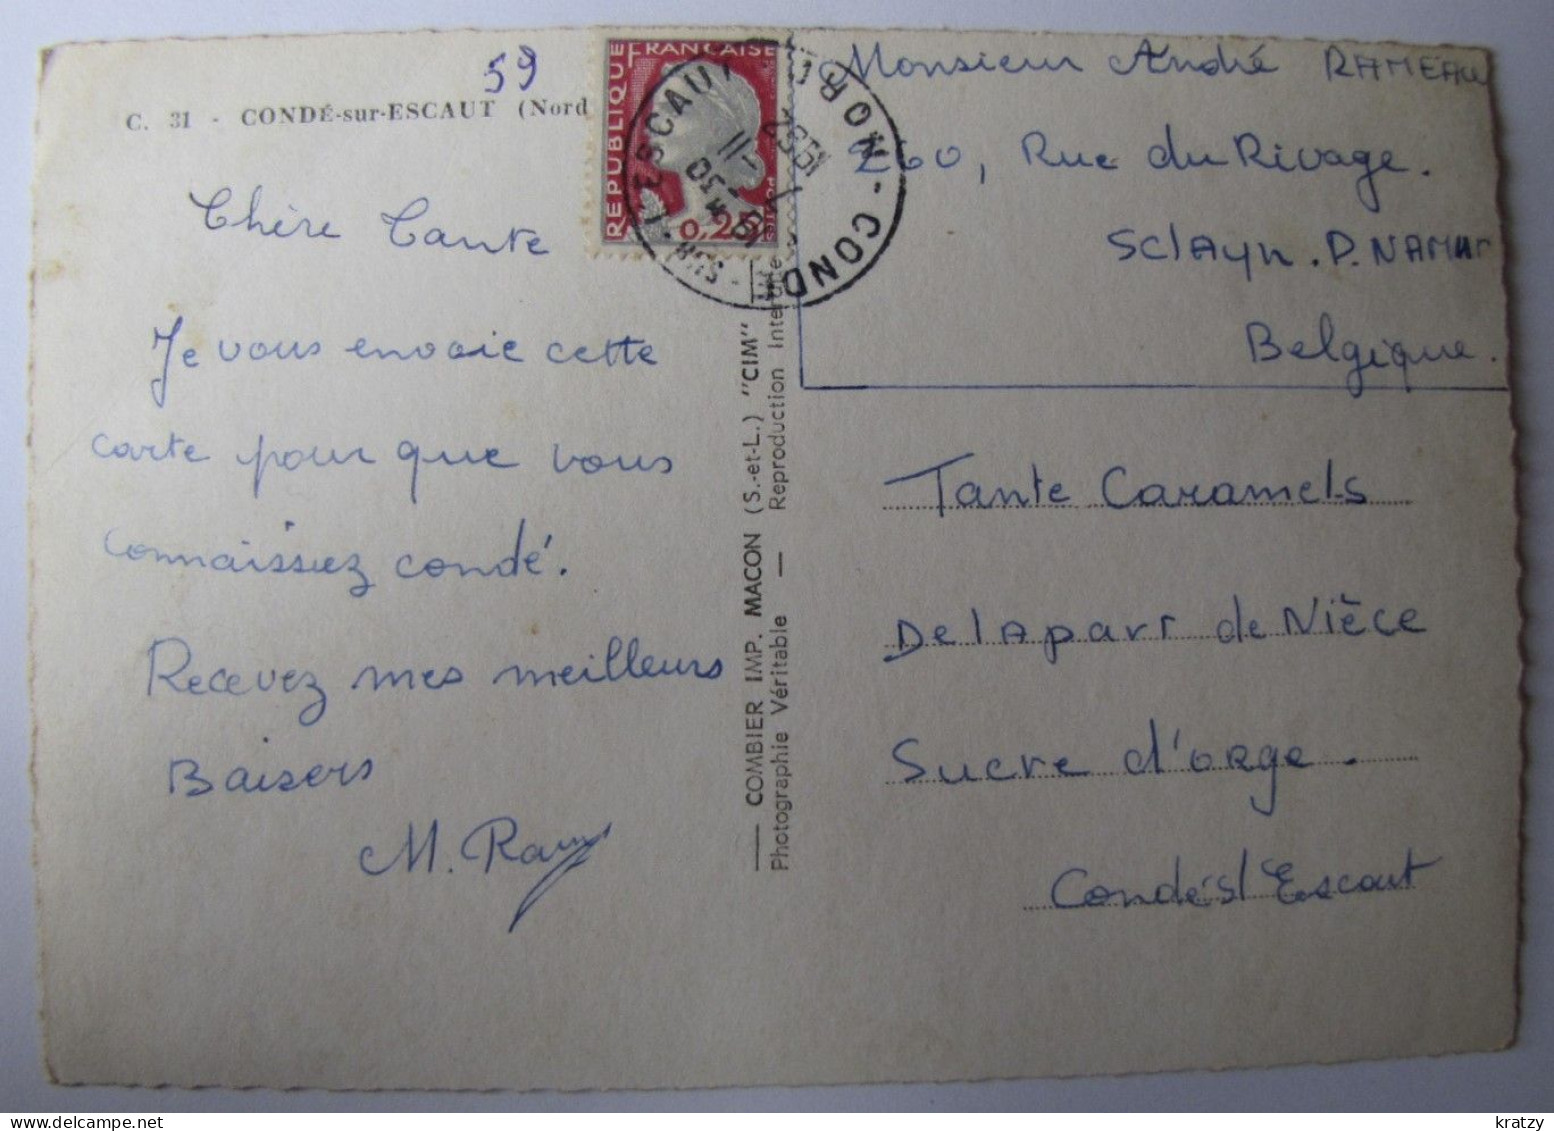 59
C. 31 - CONDÉ-sur-ESCAUT (Nord
Chère Tante
Je vous envoie cette
carte pour que vous
connaissiez condé.
Recevez mes meilleurs
Baisers
REPUBLIQUE FRANÇAISE
0,25
COMBIER IMP. MACON (S.-et-L.) "CIM"
Photographie Véritable — Reproduction Inter
Monsieur André RAMEAU
260, Rue du Rivage.
SclAyn. P. NAMUR
Belgique.
Tante Caramels
De lA part de Nièce
Sucre d'orge.
Condé s/ Escaut
kratzy